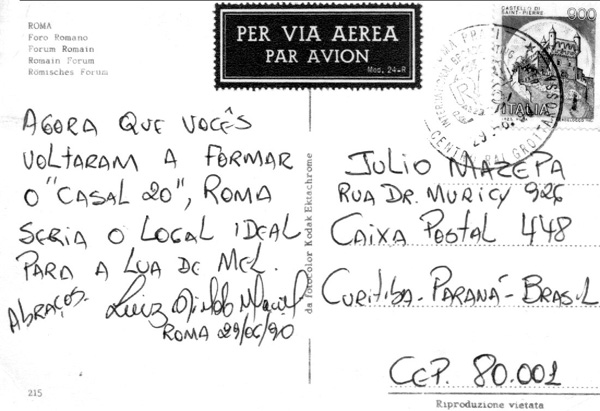 ROMA
Foro Romano
Forum Romain
Romain Forum
Römisches Forum
PER VIA AEREA
PAR AVION
Moc. 24-R
CASTELLO DI
SAINT-PIERRE
900
ITALIA
AGORA QUE VOCÊS
VOLTARAM A FORMAR
O "CASAL 20", ROMA
SERIA O LOCAL IDEAL
PARA A LUA DE MEL.
ABRAÇOS.
Luiz
ROMA 29/06/90
da fotocolor Kodak Ektachrome
JULIO MAZEPA
RUA DR. MURICY 926
CAIXA POSTAL 448
CURITIBA - PARANÁ - BRASIL
CEP. 80.001
215
Riproduzione vietata